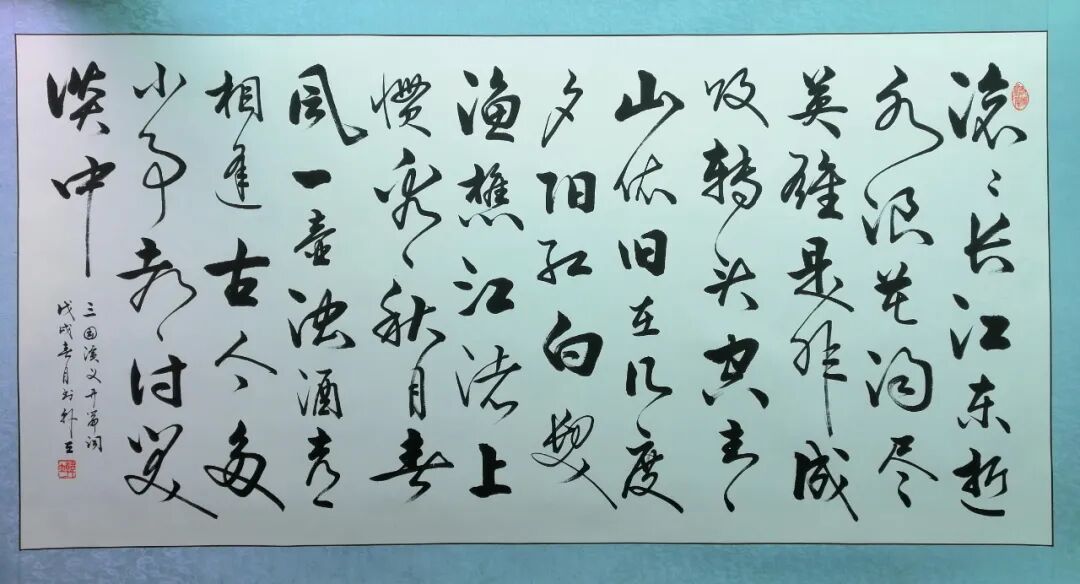 滚滚长江东逝
水浪花淘尽
英雄是非成
败转头空青
山依旧在几度
夕阳红白发
渔樵江渚上
惯看秋月春
风一壶浊酒喜
相逢古今多
少事都付笑
谈中
三国演义开篇词
戊戌春月